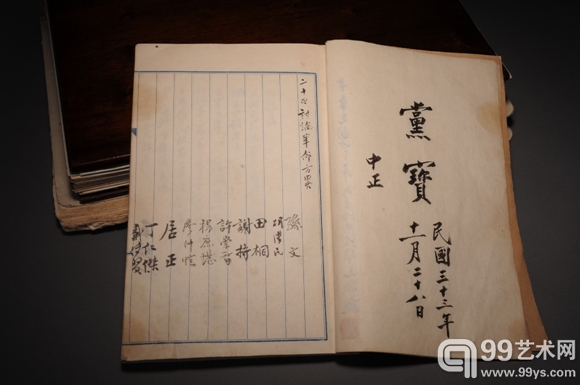 黨寶
中正
民國三十三年
十一月二十八日
討論革命方畧
孫文
胡漢民
田桐
謝持
許崇智
楊庶堪
廖仲愷
居正
丁仁傑
99艺术网
www.99ys.com